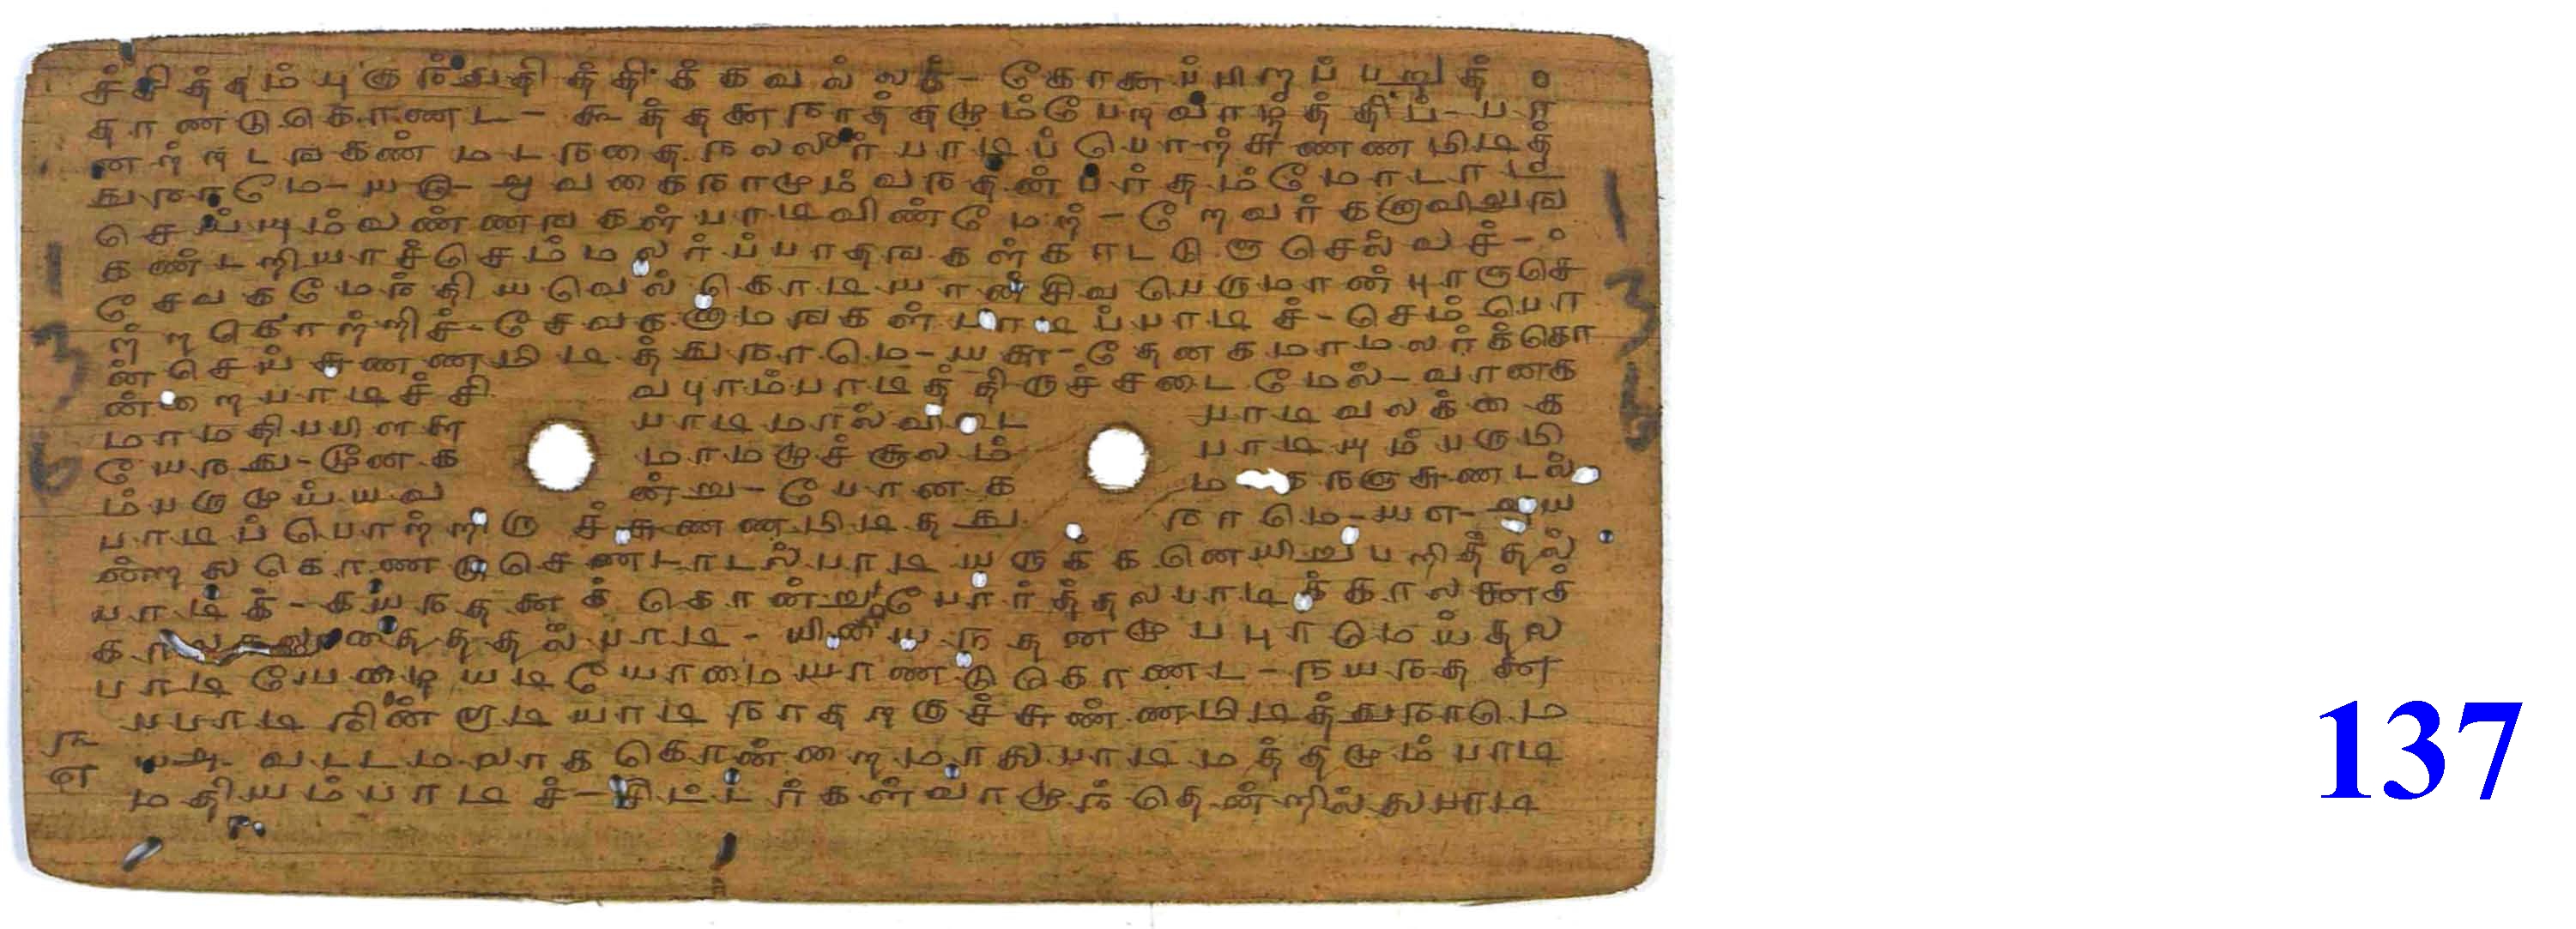 ச்சித்தம் புகுந்துதித்திக்கவல்லக்-கோனப்பிறப்பறுத்
தாண்டுகொண்ட-கூத்தனநாத்தழும்பேறவாழ்த்திப்-பா
ணற்றடஙகண் மடநதைநலலீர் பாடிப்பொற்சுண்ணமிடித்
துநாமே-யரு-ஆவகைநாமும்வநதன்பர்தம்மோடாட
செய்யும்வண்ணஙகள்பாடிவிண்மேற்-றேவர்களுவிலுங
கண்டறியாச்செம்மலர்ப்பாதஙகள்காட்டுஞசெல்வச்-
சேவகமேந்தியவெல்கொடியான்சிவபெருமான்புரஞசெ
ற்றகொற்றிச்-சேவகளுமஙகள்பாடிப்பாடிச்-செம்பொ
ன்செய்சுணணமிடித்துநாமெ-யசு-தேனகமாமலர்க்கொ
ன்றைபாடிச்சி வபுரம்பாடித்திருச்சடைமேல்-வானக
மாமதிபபிளளை பாடிமால்விடை பாடிவலக்கை
யேநது-மூனக மாமழுச்சூலம் பாடியும்பருமி
ம்பருமுய்யவ ன்று-போனக நஞசுணடல்
பாடிப்பொற்றிரு ச்சுணணமிடிதது நாமெ-யஎ-அய
ன்றலைகொணடுசெணடாடல்பாடியருக்கனெயிறுபறித்தல்
பாடிக்-கயநதனைக்கொன்றுபோர்த்தலபாடிக்காலனைக்
தைததல்பாடி-யிசையநதனமுபபுரமெய்தல
பாடியேழையடியோமையாண்டுகொண்ட-நயநதனை
பபாடிநின்றாடியாடிநாதறகுச்சுண்ணமிடித்துநாமெ
யஅ வடடமலாககொண்றைமாலைபாடிமத்தமும்பாடி
மதியம்பாடிச்-சிட்டர்கள்வாழுந்தென்றில்லைபாடி
136
136
137